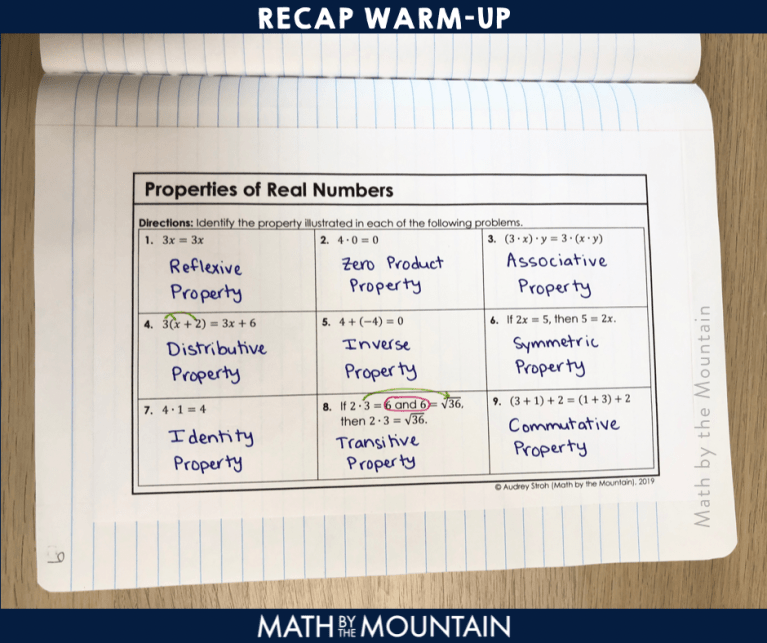 RECAP WARM-UP
Properties of Real Numbers
Directions: Identify the property illustrated in each of the following problems.
1. 3x = 3x
Reflexive
Property
2. 4 · 0 = 0
Zero Product
Property
3. (3 · x) · y = 3 · (x · y)
Associative
Property
4. 3(x + 2) = 3x + 6
Distributive
Property
5. 4 + (−4) = 0
Inverse
Property
6. If 2x = 5, then 5 = 2x.
Symmetric
Property
7. 4 · 1 = 4
Identity
Property
8. If 2 · 3 = 6 and 6 = √36,
then 2 · 3 = √36.
Transitive
Property
9. (3 + 1) + 2 = (1 + 3) + 2
Commutative
Property
© Audrey Stroh (Math by the Mountain), 2019
Math by the Mountain
MATH BY THE MOUNTAIN